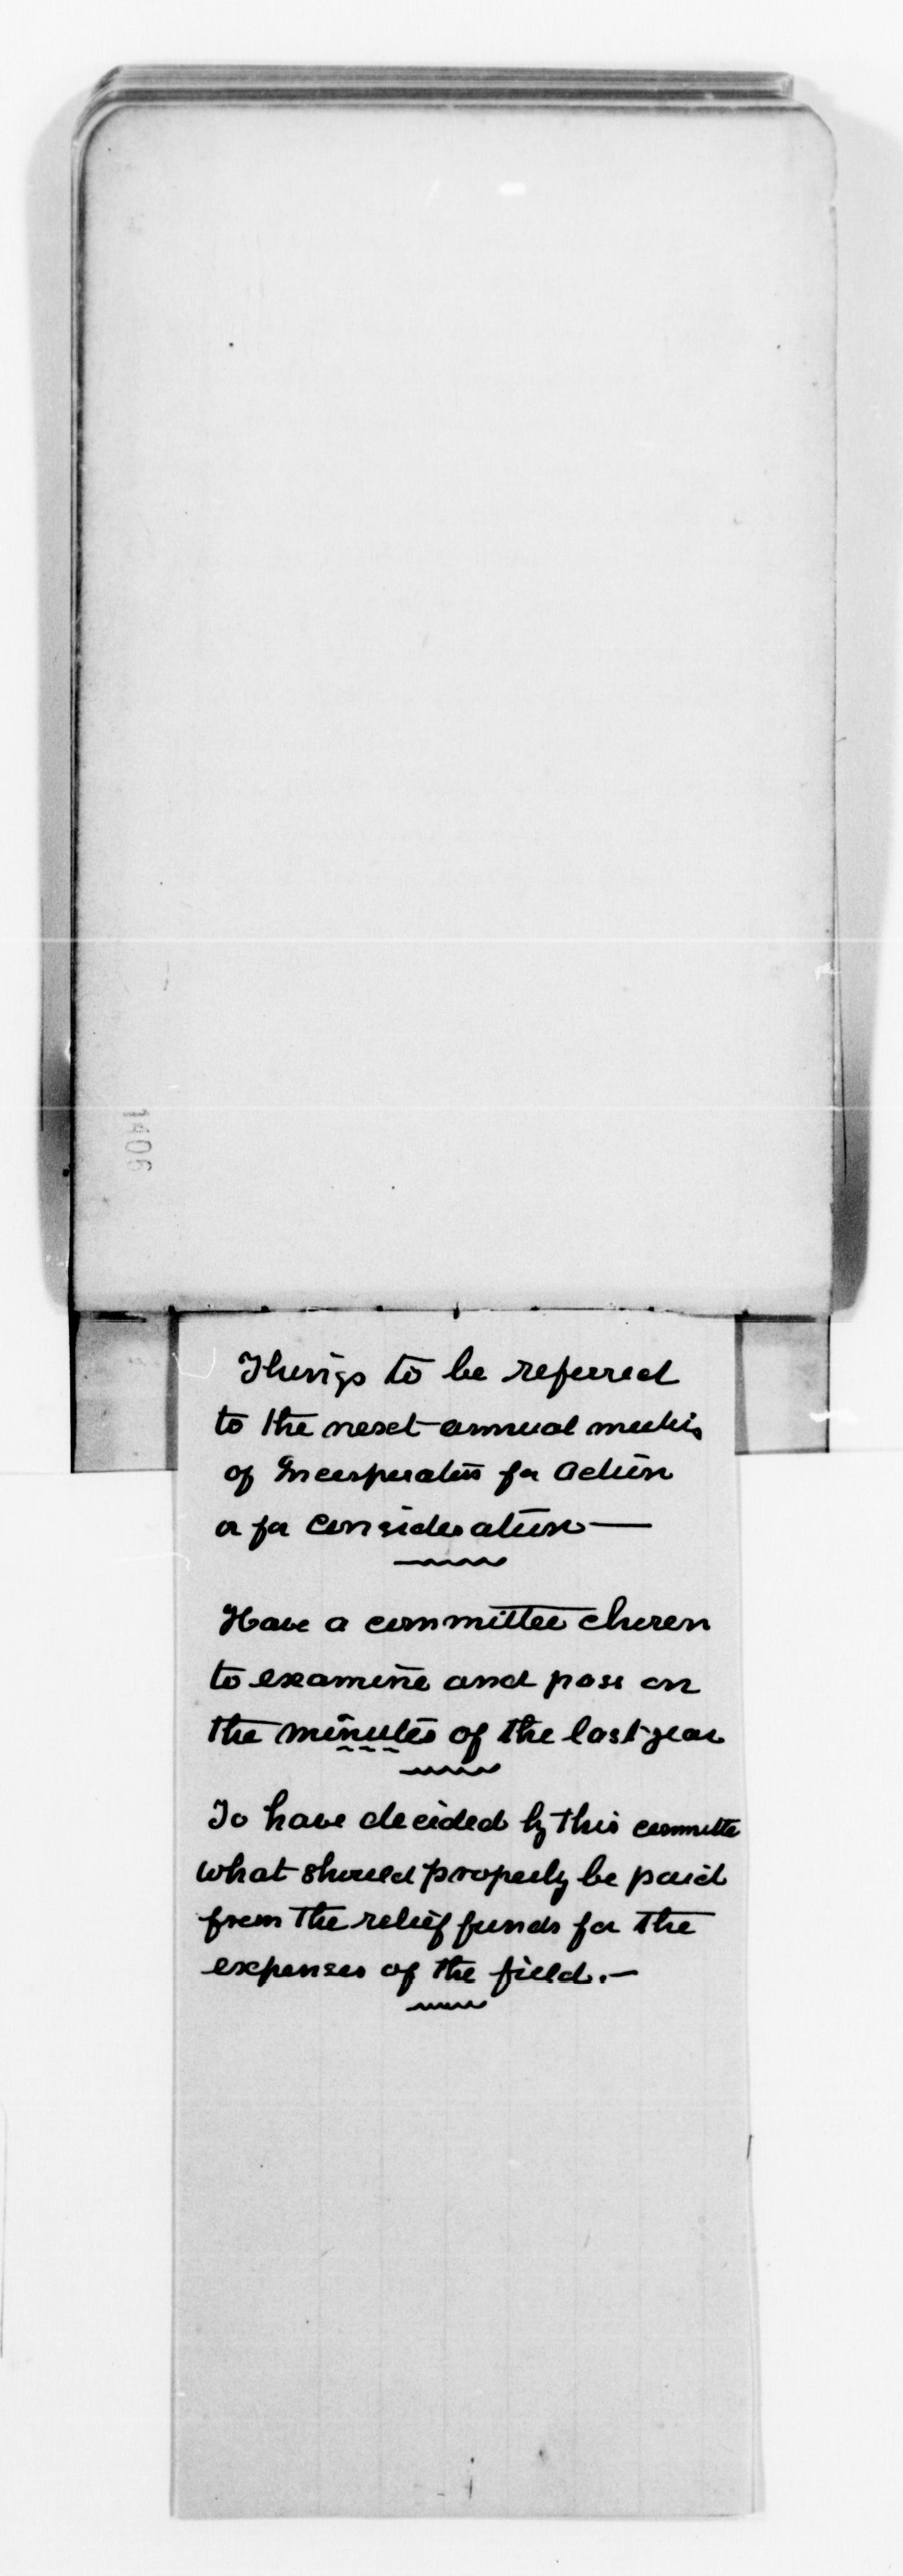 1406
Things to be referred
to the next annual meeting
of Incorporators for Action
or for consideration —
Have a committee chosen
to examine and pass on
the minutes of the last year
To have decided by this committe
what should properly be paid
from the relief funds for the
expenses of the field. —